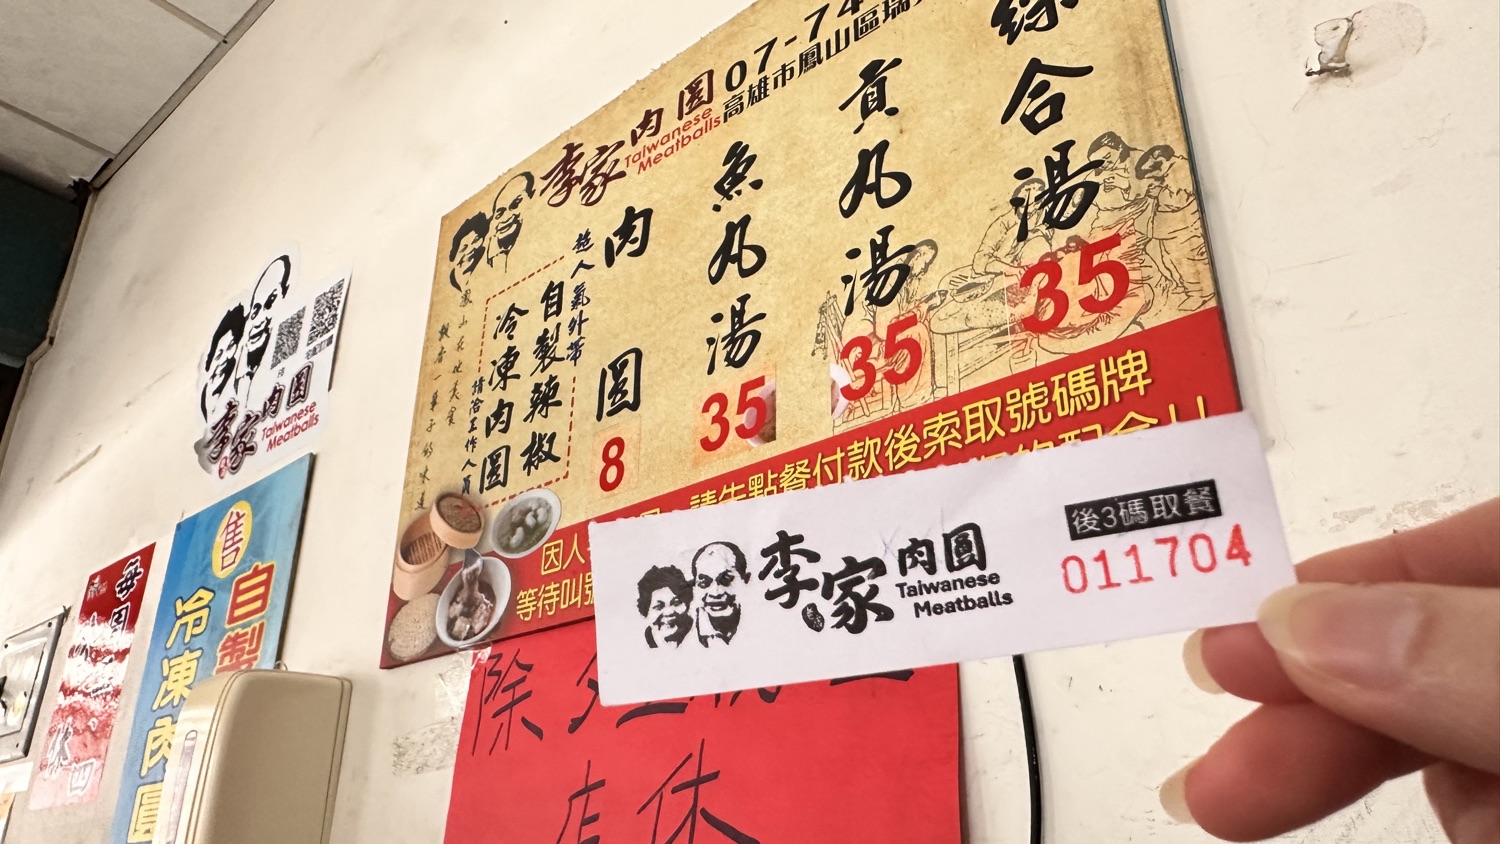 李家肉圆
Taiwanese
Meatballs
07-74
高雄市鳳山區瑞
綜合湯
35
貢丸湯
35
魚丸湯
35
肉圓
8
超人氣外帶
自製辣椒
冷凍肉圓
請洽工作人員
請先點餐付款後索取號碼牌
因人
等待叫號
李家肉圓
Taiwanese
Meatballs
後3碼取餐
011704
李家肉圓
Taiwanese
Meatballs
售
自製
冷凍肉圓
每周
休四
除夕
店休